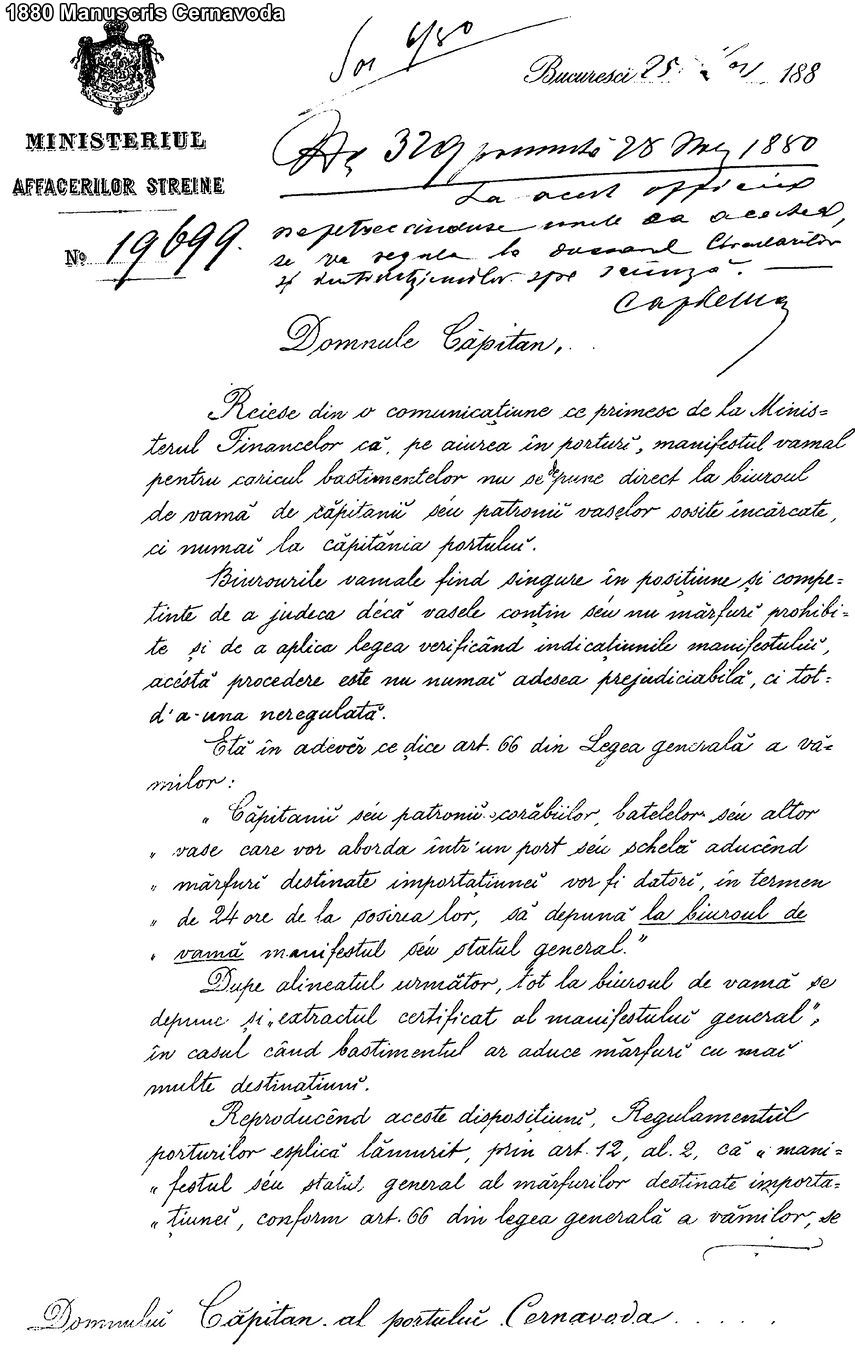 1880 Manuscris Cernavoda
6/80
Bucuresci 25 188
MINISTERIUL
AFFACERILOR STREINE
№ 19699.
329 primită 28 1880
La acest officiu
unele ca acestea,
se va regula la dosarul Circularilor
și instrucțiunilor spre sciință.
Domnule Căpitan,
Reiese din o comunicațiune ce primesc de la Minis=
terul Financelor că, pe aiurea în porturĭ, manifestul vamal
pentru caricul bastimentelor nu se depune direct la biuroul
de vamă de căpitaniĭ séu patroniĭ vaselor sosite încărcate,
ci numaĭ la căpitănia portuluĭ.
Biurourile vamale fiind singure în pozițiune și compe=
tinte de a judeca décă vasele conțin séu nu mărfurĭ prohibi=
te și de a aplica legea verificând indicațiunile manifestuluĭ,
acéstă procedere este nu numaĭ adesea prejudiciabilă, ci tot-
d'a-una neregulată.
Etă în adevĕr ce dice art. 66 din Legea generală a vă=
milor:
„ Căpitaniĭ séu patroniĭ corăbiilor, batelelor séu altor
„ vase care vor aborda într'un port séu schelă aducĕnd
„ mărfurĭ destinate importațiuneĭ vor fi datorĭ, în termen
„ de 24 ore de la sosirea lor, să depună la biuroul de
„ vamă manifestul séu statul general."
Dupe alineatul următor, tot la biuroul de vamă se
depune și „extractul certificat al manifestuluĭ general",
în casul când bastimentul ar aduce mărfurĭ cu maĭ
multe destinațiunĭ.
Reproducĕnd aceste dispozițiunĭ, Regulamentul
porturilor esplică lămurit, prin art. 12, al. 2, că „ mani=
„ festul séu statul general al mărfurilor destinate importa=
„ țiuneĭ, conform art. 66 din legea generală a vămilor, se
Domnuluĭ Căpitan al portuluĭ Cernavoda.....